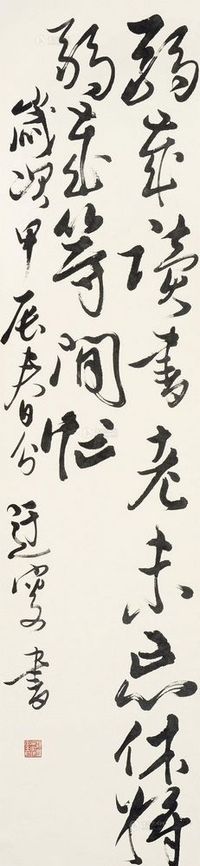 弱歲讀書老未忘休將
弱歲等閒忙
歲次甲辰春日 叟書